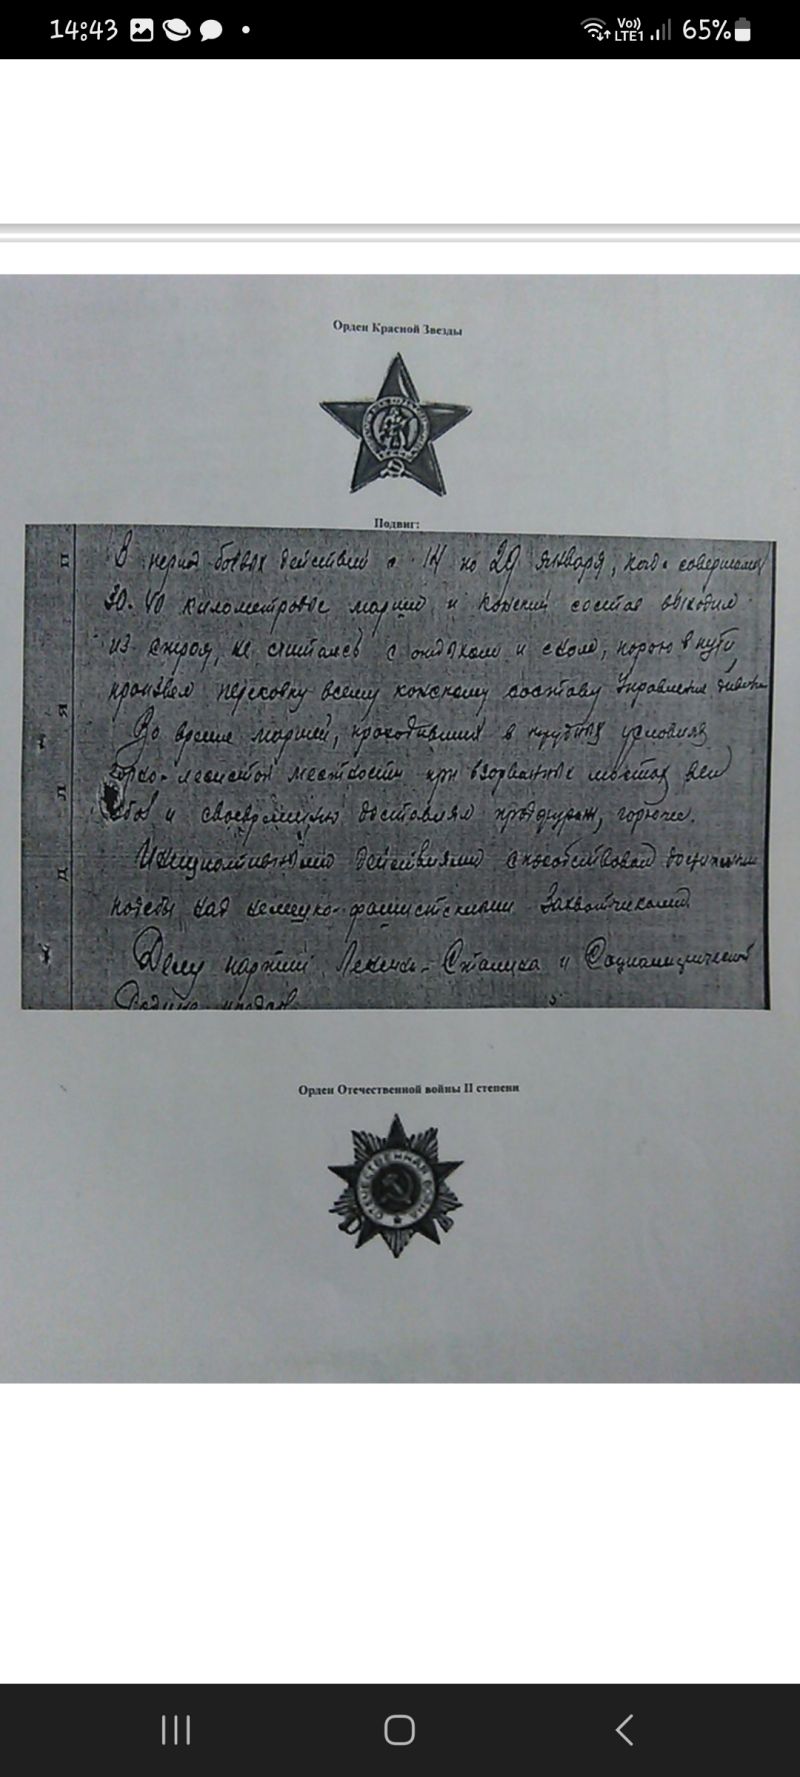 14:43
Vo))
LTE1
65%
Орден Красной Звезды
Подвиг:
В период боевых действий с 14 по 29 января, когда совершались
30-40 километровые марши и конский состав выходил
из строя, не считаясь с отдыхом и сном, порою в пути,
произвел перековку всему конскому составу Управления дивизии
Во время маршей, проходивших в трудных условиях
горно-лесистой местности при взорванных мостах вел
обоз и своевременно доставлял продфураж, горючее.
Инициативными действиями способствовал достижению
победы над немецко-фашистскими захватчиками
Делу партии Ленина-Сталина и Социалистической
Родине предан
Орден Отечественной войны II степени
ОТЕЧЕСТВЕННАЯ ВОЙНА